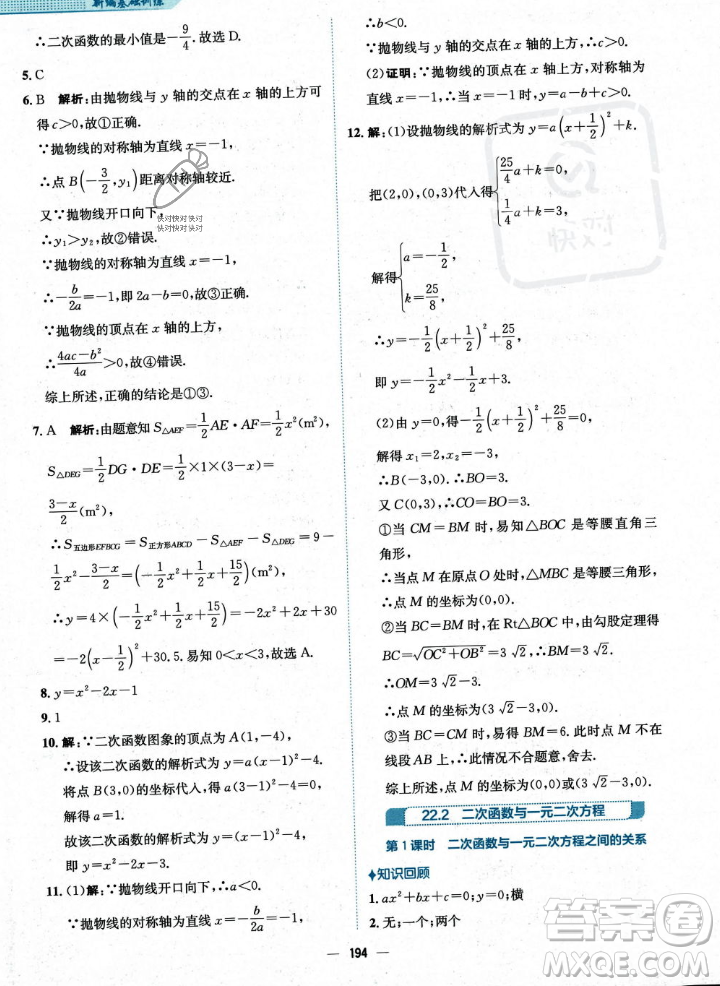 新编基础训练
∴二次函数的最小值是-9/4.故选 D.
5. C
6. B 解析:由抛物线与 y 轴的交点在 x 轴的上方可
得 c>0,故①正确.
∵抛物线的对称轴为直线 x=-1,
∴点 B(-3/2,y₁)距离对称轴较近.
又∵抛物线开口向下,
∴y₁>y₂,故②错误.
∵抛物线的对称轴为直线 x=-1,
∴-b/2a=-1,即 2a-b=0,故③正确.
∵抛物线的顶点在 x 轴的上方,
∴(4ac-b²)/4a>0,故④错误.
综上所述,正确的结论是①③.
7. A 解析:由题意知 S△AEF=1/2 AE·AF=1/2 x²(m²),
S△DEG=1/2 DG·DE=1/2×1×(3-x)=
(3-x)/2(m²),
∴S五边形EFBCG=S正方形ABCD-S△AEF-S△DEG=9-
1/2 x²-(3-x)/2=(-1/2 x²+1/2 x+15/2)(m²),
∴y=4×(-1/2 x²+1/2 x+15/2)=-2x²+2x+30
=-2(x-1/2)²+30.5.易知 0<x<3,故选 A.
8. y=x²-2x-1
9. 1
10. 解:∵二次函数图象的顶点为 A(1,-4),
∴设该二次函数的解析式为 y=a(x-1)²-4.
将点 B(3,0)的坐标代入,得 a(3-1)²-4=0.
解得 a=1.
故该二次函数的解析式为 y=(x-1)²-4,
即 y=x²-2x-3.
11. (1)解:∵抛物线开口向下,∴a<0.
∵抛物线的对称轴为直线 x=-b/2a=-1,
∴b<0.
∵抛物线与 y 轴的交点在 x 轴上方,∴c>0.
(2)证明:∵抛物线的顶点在 x 轴上方,对称轴为
直线 x=-1,∴当 x=-1 时,y=a-b+c>0.
12. 解:(1)设抛物线的解析式为 y=a(x+1/2)²+k.
把(2,0),(0,3)代入得{25/4 a+k=0,
1/4 a+k=3,
解得{a=-1/2,
k=25/8,
∴y=-1/2(x+1/2)²+25/8,
即 y=-1/2 x²-1/2 x+3.
(2)由 y=0,得-1/2(x+1/2)²+25/8=0.解得
x₁=2,x₂=-3.
∴B(-3,0).∴BO=3.
又 C(0,3),∴CO=3.
①当 CM=BM 时,易知△BOC 是等腰直角三
角形,
∴当点 M 在原点 O 处时,△MBC 是等腰三角形,
∴点 M 的坐标为(0,0).
②当 BC=BM 时,在 Rt△BOC 中,由勾股定理得
BC=√(OC²+OB²)=3√2,∴BM=3√2.
∴OM=3√2-3.
∴点 M 的坐标为(3√2-3,0).
③当 CM=BC 时,易得 BM=6.而此时点 M 不在
线段 AB 上,所以不合题意,舍去.
综上所述,点 M 的坐标为(0,0)或(3√2-3,0).
22.2 二次函数与一元二次方程
第 1 课时 二次函数与一元二次方程之间的关系
知识回顾
1. ax²+bx+c=0;横
2. 无;一个;两个
194
快对快对快对
快对快对快对
快对
作业精灵